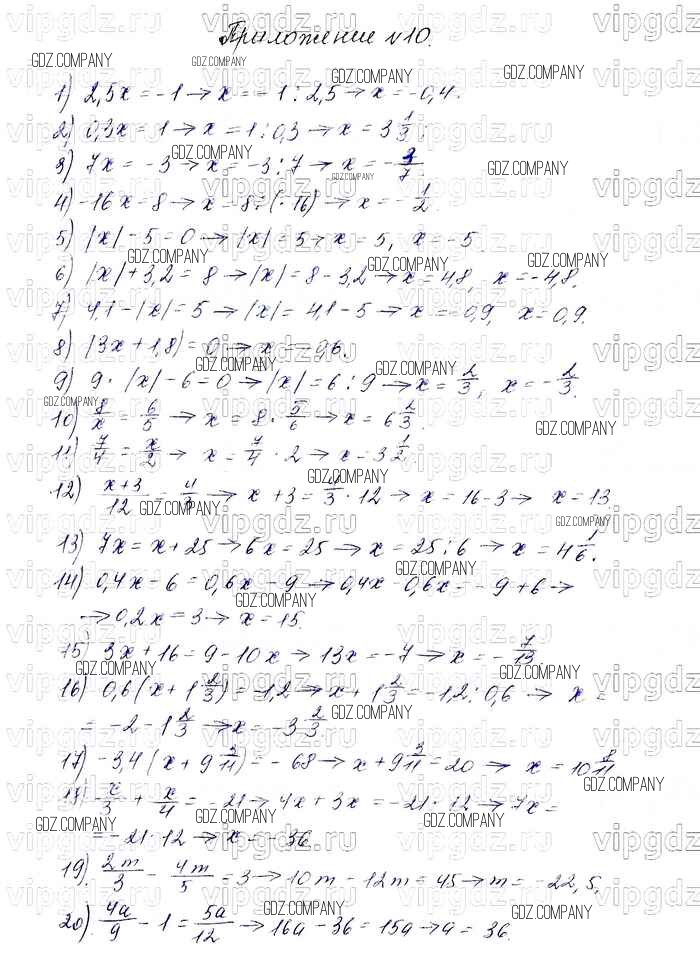 Приложение №10.
1) 2,5x = -1 → x = -1 : 2,5 → x = -0,4.
2) 0,3x = 1 → x = 1 : 0,3 → x = 3 1/3.
3) 7x = -3 → x = -3 : 7 → x = -3/7.
4) -16x = 8 → x = 8 : (-16) → x = -1/2.
5) |x| - 5 = 0 → |x| = 5 → x = 5, x = -5.
6) |x| + 3,2 = 8 → |x| = 8 - 3,2 → x = 4,8, x = -4,8.
7) 4,1 - |x| = 5 → |x| = 4,1 - 5 → x = -0,9, x = 0,9.
8) |3x + 1,8| = 0 → x = -0,6.
9) 9 · |x| - 6 = 0 → |x| = 6 : 9 → x = 2/3, x = -2/3.
10) 8/x = 6/5 → x = 8 · 5/6 → x = 6 2/3.
11) 7/4 = x/2 → x = 7/4 · 2 → x = 3 1/2.
12) x+3/12 = 4/3 → x + 3 = 4/3 · 12 → x = 16 - 3 → x = 13
13) 7x = x + 25 → 6x = 25 → x = 25 : 6 → x = 4 1/6.
14) 0,4x - 6 = 0,6x - 9 → 0,4x - 0,6x = -9 + 6 →
→ 0,2x = 3 → x = 15.
15) 3x + 16 = 9 - 10x → 13x = -7 → x = -7/13
16) 0,6(x + 1 2/3) = -1,2 → x + 1 2/3 = -1,2 : 0,6 → x =
= -2 - 1 2/3 → x = -3 2/3.
17) -3,4(x + 9 3/11) = -68 → x + 9 3/11 = 20 → x = 10 8/11
18) x/3 + x/4 = -21 → 4x + 3x = -21 · 12 → 7x =
= -21 · 12 → x = -36.
19) 2m/3 - 4m/5 = 3 → 10m - 12m = 45 → m = -22,5.
20) 4a/9 - 1 = 5a/12 → 16a - 36 = 15a → a = 36.
vipgdz.ru
GDZ.COMPANY